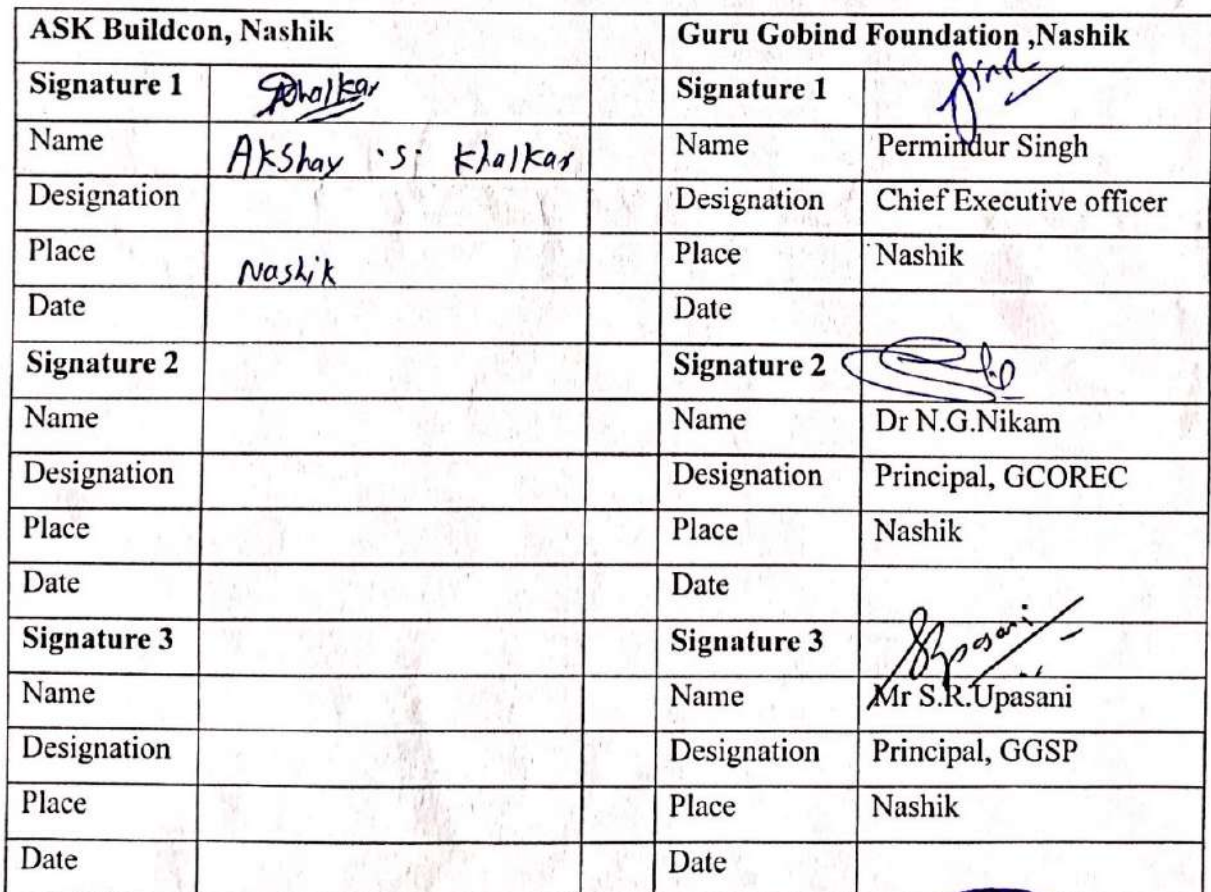 ASK Buildcon, Nashik Guru Gobind Foundation ,Nashik
Signature 1 Signature 1
Name Akshay .S. Khalkar Name Permindur Singh
Designation Designation Chief Executive officer
Place Nashik Place Nashik
Date Date
Signature 2 Signature 2
Name Name Dr N.G.Nikam
Designation Designation Principal, GCOREC
Place Place Nashik
Date Date
Signature 3 Signature 3
Name Name Mr S.R.Upasani
Designation Designation Principal, GGSP
Place Place Nashik
Date Date